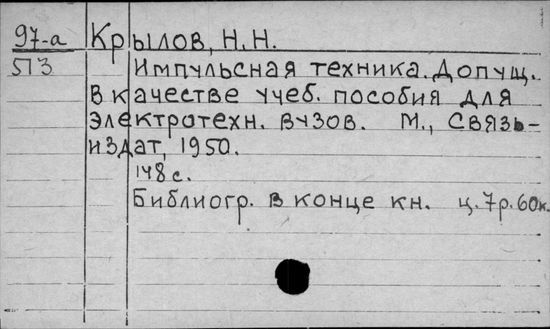 97-а Крылов, Н. Н.
513 Импульсная техника. Допущ.
в качестве учеб. пособия для
электротехн. вузов. М., Связь-
издат, 1950.
148 с.
Библиогр. в конце кн. ц. 7р. 60к.